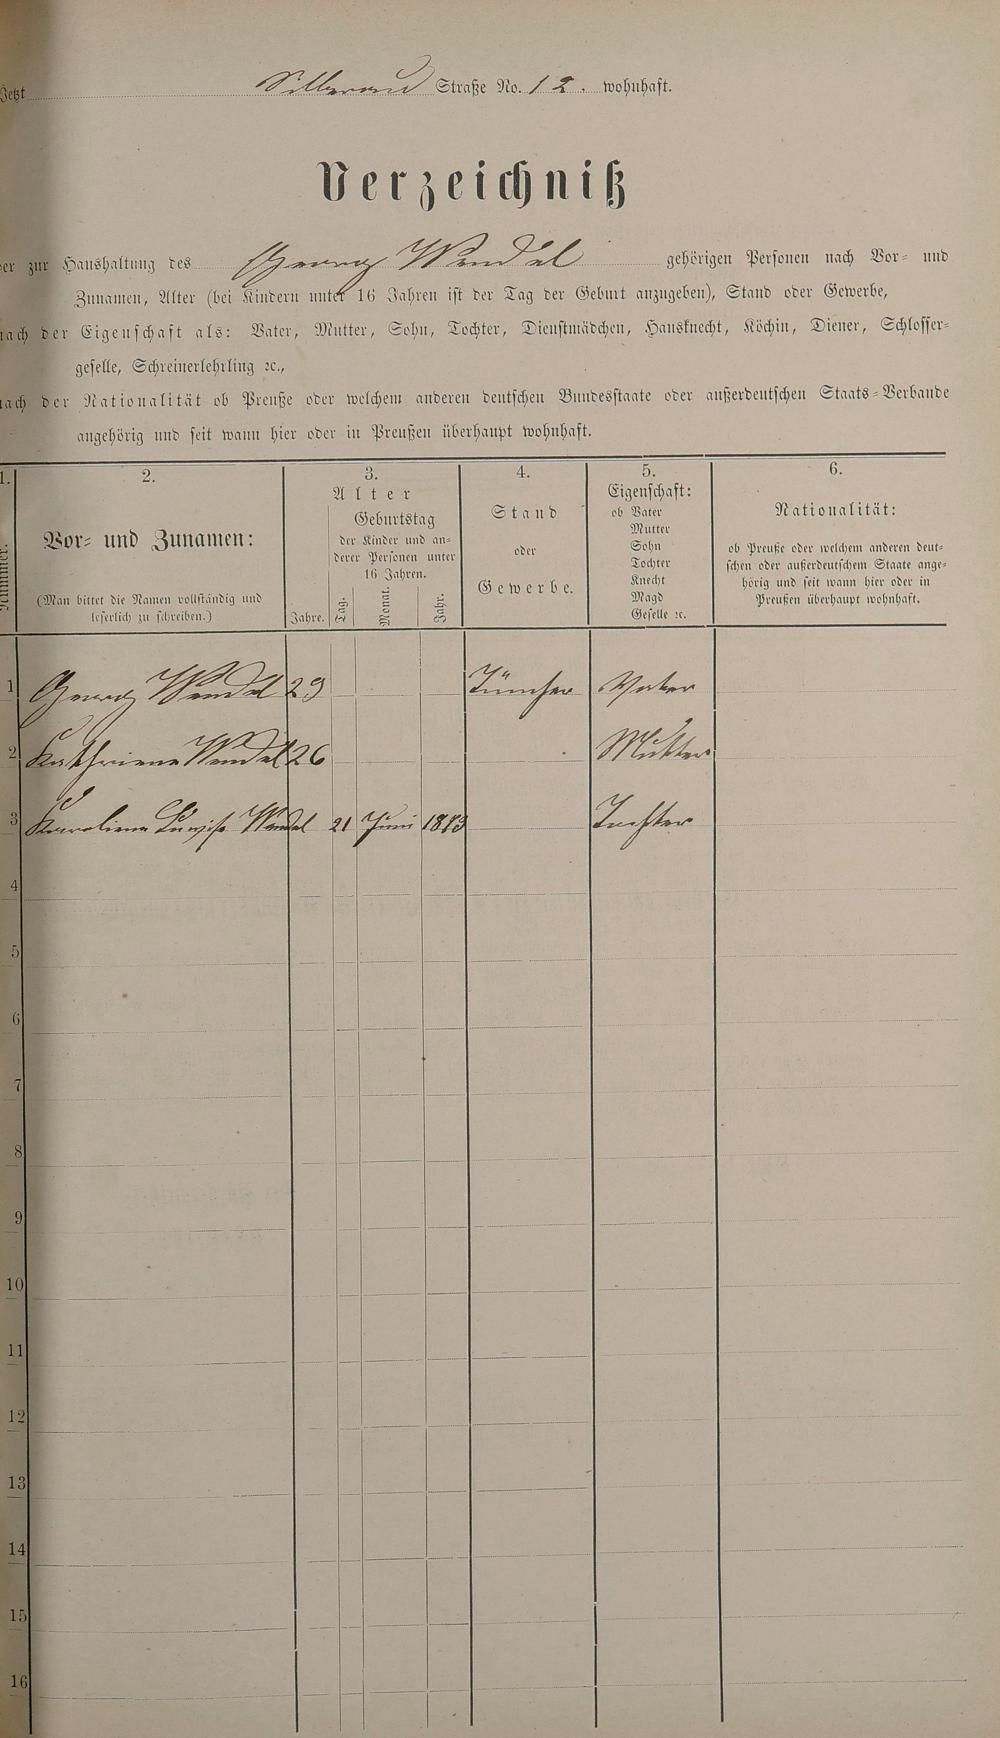 Jetzt Silberaud Straße No. 12. wohnhaft.
Verzeichniß
er zur Haushaltung des Georg Wendel gehörigen Personen nach Vor- und
Zunamen, Alter (bei Kindern unter 16 Jahren ist der Tag der Geburt anzugeben), Stand oder Gewerbe,
nach der Eigenschaft als: Vater, Mutter, Sohn, Tochter, Dienstmädchen, Hausknecht, Köchin, Diener, Schlosser-
geselle, Schreinerlehrling ꝛc.,
nach der Nationalität ob Preuße oder welchem anderen deutschen Bundesstaate oder außerdeutschen Staats-Verbande
angehörig und seit wann hier oder in Preußen überhaupt wohnhaft.
1. 2. 3. 4. 5. 6.
Nummer.
Vor- und Zunamen:
(Man bittet die Namen vollständig und
leserlich zu schreiben.)
Alter
Jahre.
Geburtstag
der Kinder und an-
derer Personen unter
16 Jahren.
Tag. Monat. Jahr.
Stand
oder
Gewerbe.
Eigenschaft:
ob Vater
Mutter
Sohn
Tochter
Knecht
Magd
Geselle ꝛc.
Nationalität:
ob Preuße oder welchem anderen deut-
schen oder außerdeutschem Staate ange-
hörig und seit wann hier oder in
Preußen überhaupt wohnhaft.
1 Georg Wendel 29 Tüncher Vater
2 Kathriene Wendel 26 Mutter
3 Karoliene Luwise Wendel 21 Juni 1873 Tochter
4
5
6
7
8
9
10
11
12
13
14
15
16